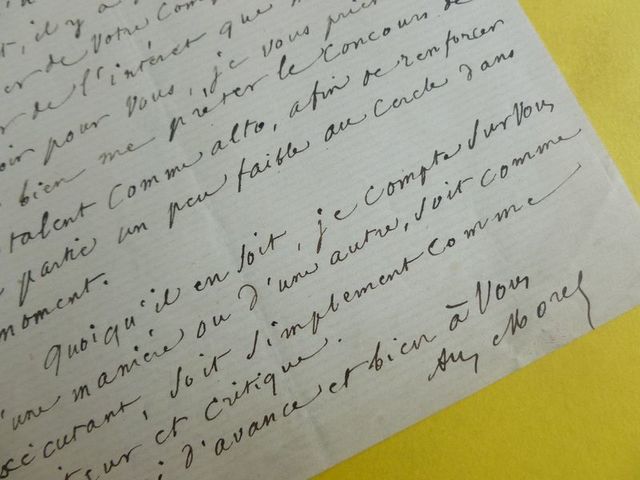 , il y a
de votre com
de l'intérêt que
pour vous, je vous prier
bien me prêter le concours de
talent comme alto, afin de renforcer
partie un peu faible au cercle dans
moment.
Quoiqu'il en soit, je compte sur vous
d'une manière ou d'une autre, soit comme
exécutant, soit simplement comme
et critique.
d'avance et bien à vous
Aug Morel